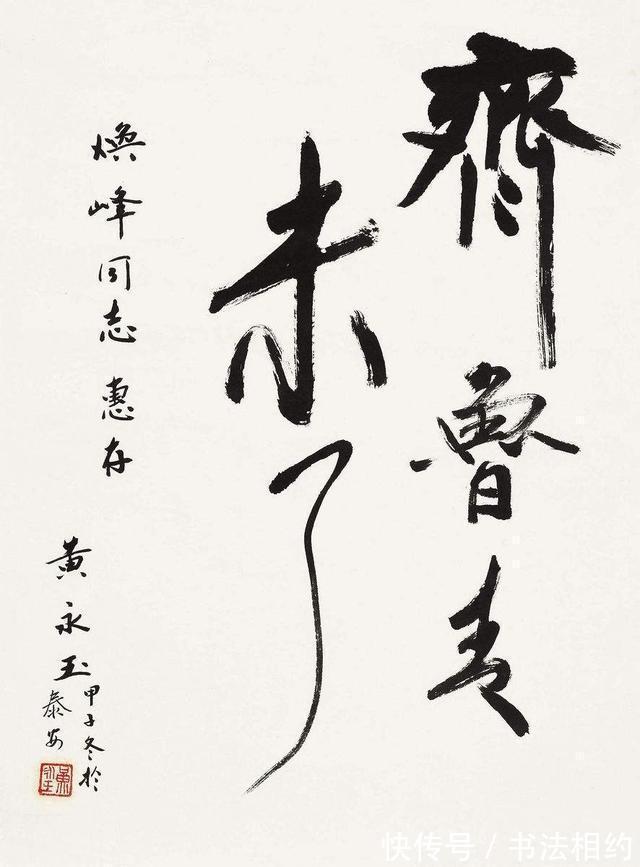 齊魯青
未了
煥峰同志惠存
黄永玉
甲子冬於
泰安
快传号／书法相约